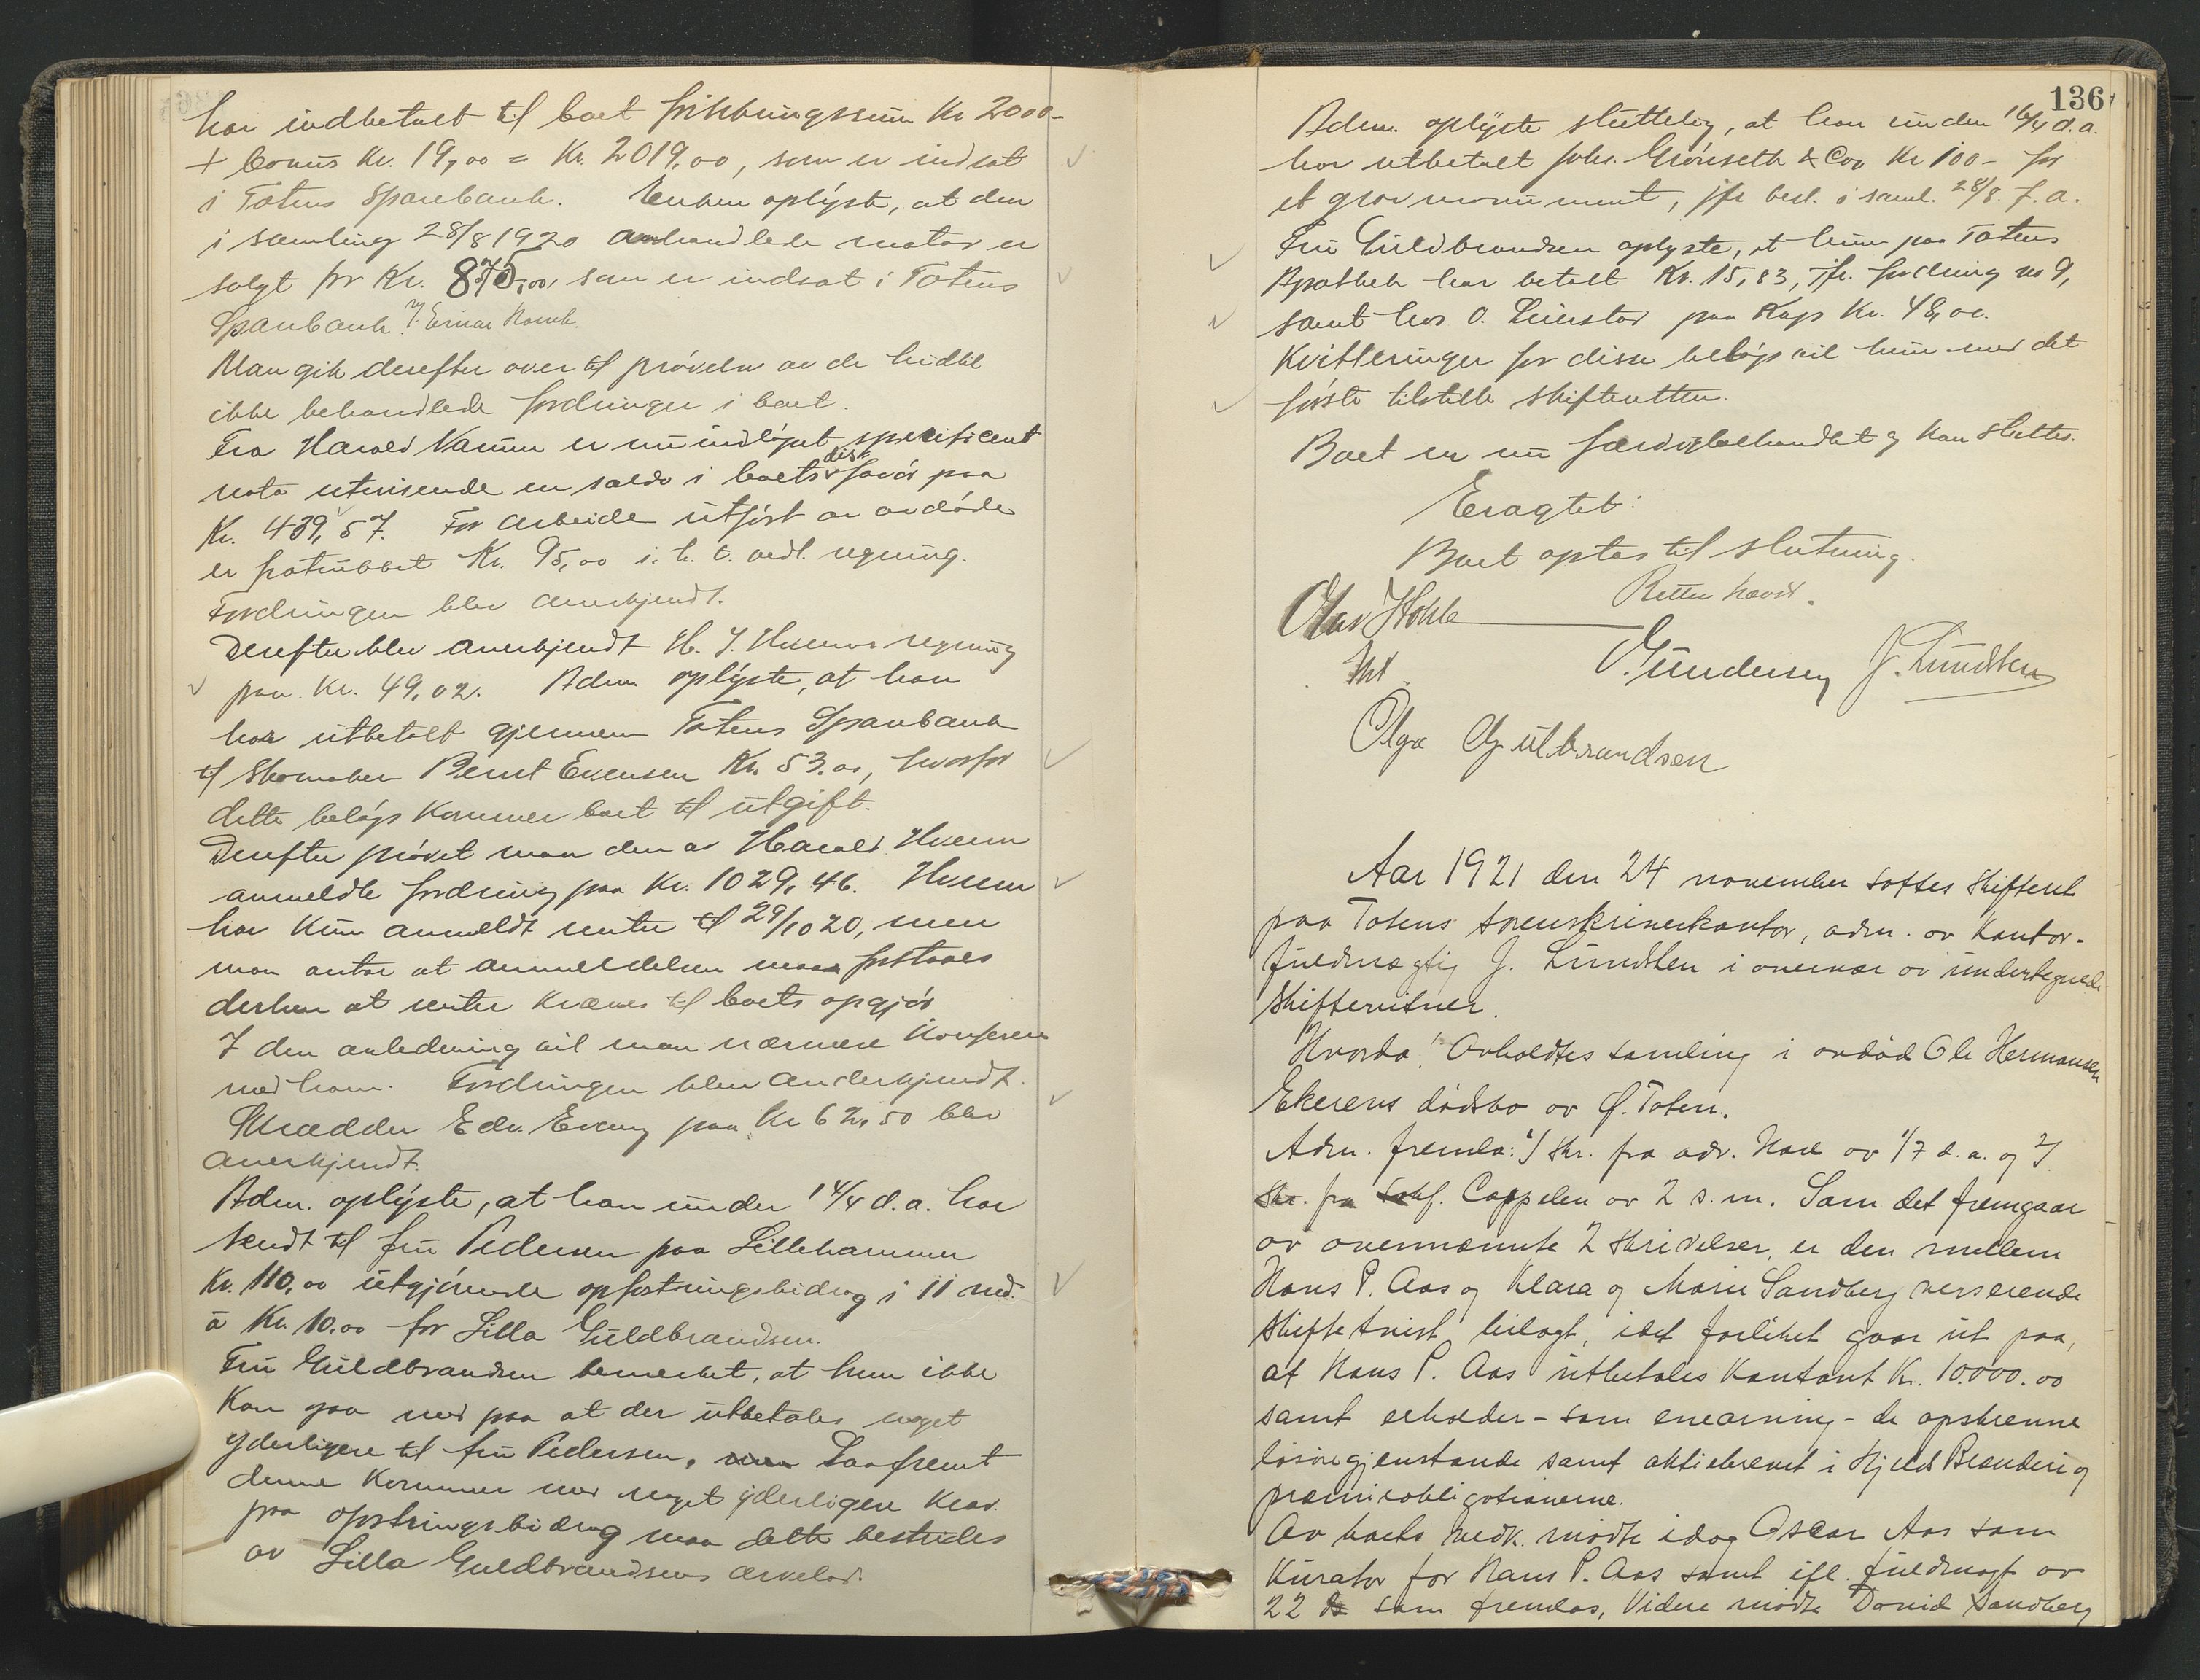 har indbetalt til boet forsikringssum Kr 2000-
+ bonus Kr. 19,00 = Kr. 2019,00, som er indsat
i Totens Sparebank. Enken oplyste, at den
i samling 28/8 1920 omhandlede motor er
solgt for Kr. 875,00, som er indsat i Totens
Sparebank. Einar
Man gik derefter over til prøvelse av de hidtil
ikke behandlede fordringer i boet.
Fra Harald er nu indløpet specificert
nota utvisende en saldo i boets disfavør paa
Kr. 439,57. For arbeide utført av avdøde
er fratrukket Kr. 95,00 i. h. t. vedl. regning.
Fordringen blev anerkjendt.
Derefter blev anerkjendt H. J. regning
paa Kr. 49,02. Adm. oplyste, at han
har utbetalt gjennem Totens Sparebank
til Skomaker Bernt Evensen Kr. 53.00, hvorfor
dette beløp kommer boet til utgift.
Derefter prøvet man den av Harald
anmeldte fordring paa Kr. 1029,46.
har kun anmeldt renter til 29/10 20, men
man antar at anmeldelsen maa forstaaes
derhen at renter kræves til boets opgjør
I den anledning vil man nærmere konferere
med ham. Fordringen blev anderkjendt.
Skrædder Edv. Evang paa Kr 62,50 blev
anerkjendt.
Adm. oplyste, at han under 14/4 d.a. har
sendt til fru Pedersen paa Lillehammer
Kr. 110,00 utgjørende opfostringsbidrag i 11 md.
à Kr. 10.00 for Lilla Guldbrandsen.
Fru Guldbrandsen bemerket, at hun ikke
kan gaa med paa at der utbetales noget
yderligere til fru Pedersen, men Saafremt
denne kommer med noget yderligere krav
paa opfostringsbidrag maa dette bestrides
av Lilla Guldbrandsens arvelod.
136
Adm. oplyste sluttelig, at han under 16/4 d.a.
har utbetalt Johs. Grønseth & Co Kr 100- for
et gravmonument, jfr besl. i saml. 28/8. f.a.
Fru Guldbrandsen oplyste, at hun paa Totens
Apothek har betalt Kr. 15,83, jfr. fordring no 9,
samt hos O. paa Kap Kr. 48,00.
Kvitteringer for disse beløp vil hun med det
første tilstille skifteretten.
Boet er nu færdigbehandlet og kan sluttes.
Eragtet:
Boet optas til slutning.
Retten hævet.
Gundersen J. Lundsten
Olga Gulbrandsen
Aar 1921 den 24 november sattes skifteret
paa Totens sorenskriverkontor, adm. av kontor-
fuldmægtig J. Lundsten i overvær av undertegnede
skiftevitner.
Hvorda: Avholdtes samling i avdød Ole Hermansen
Ekerens dødsbo av Ø. Toten.
Adm. fremla: 1/ skr. fra adv. av 1/7 d.a. og 2/
Skr. fra Cappelen av 2 s.m. Som det fremgaar
av ovennævnte 2 skrivelser, er den mellem
Hans P. Aas og Klara og Marie Sandberg verserende
skiftetvist bilagt, idet forliket gaar ut paa,
at Hans P. Aas utbetales kontant Kr. 10.000.00
samt erholder - som enearving - de opskrevne
løsøregjenstande samt aktiebrevet i Brænderi og
præmieobligationerne.
Av boets vedk. møtte idag Oscar Aas som
kurator for Hans P. Aas samt ifl. fuldmagt av
22 ds som fremlas, Videre møtte David Sandberg